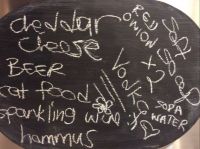 cheddar
cheese
BEER
cat food
sparkling wine
hammus
RED
ONION
VODKA
SODA
WATER